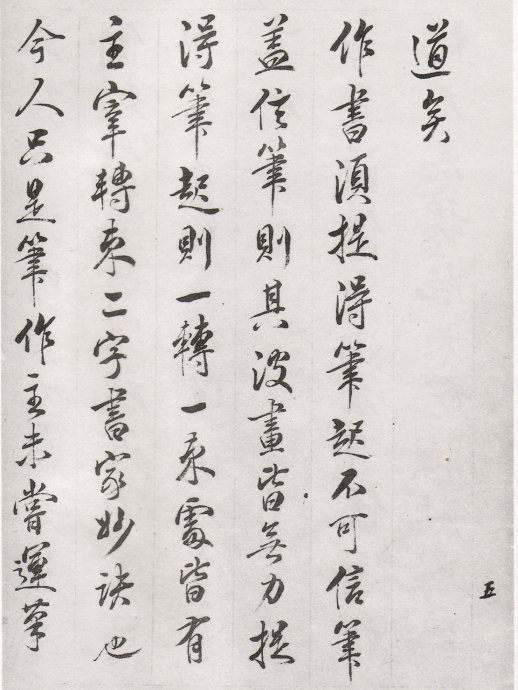 道矣
作書須提得筆起不可信筆
蓋信筆則其波畫皆無力提
得筆起則一轉一束處皆有
主宰轉束二字書家妙訣也
今人只是筆作主未嘗運筆
五